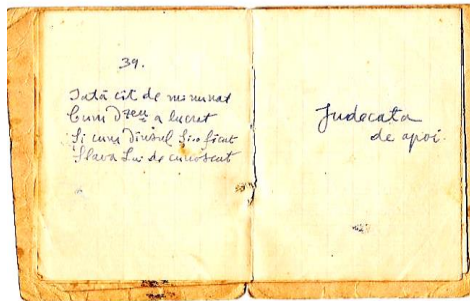 39.
Iată cît de minunat
Cum Dzeu a lucrat
Și cum Dînsul și-o făcut
Slava Lui de cunoscut
Judecata
de apoi.